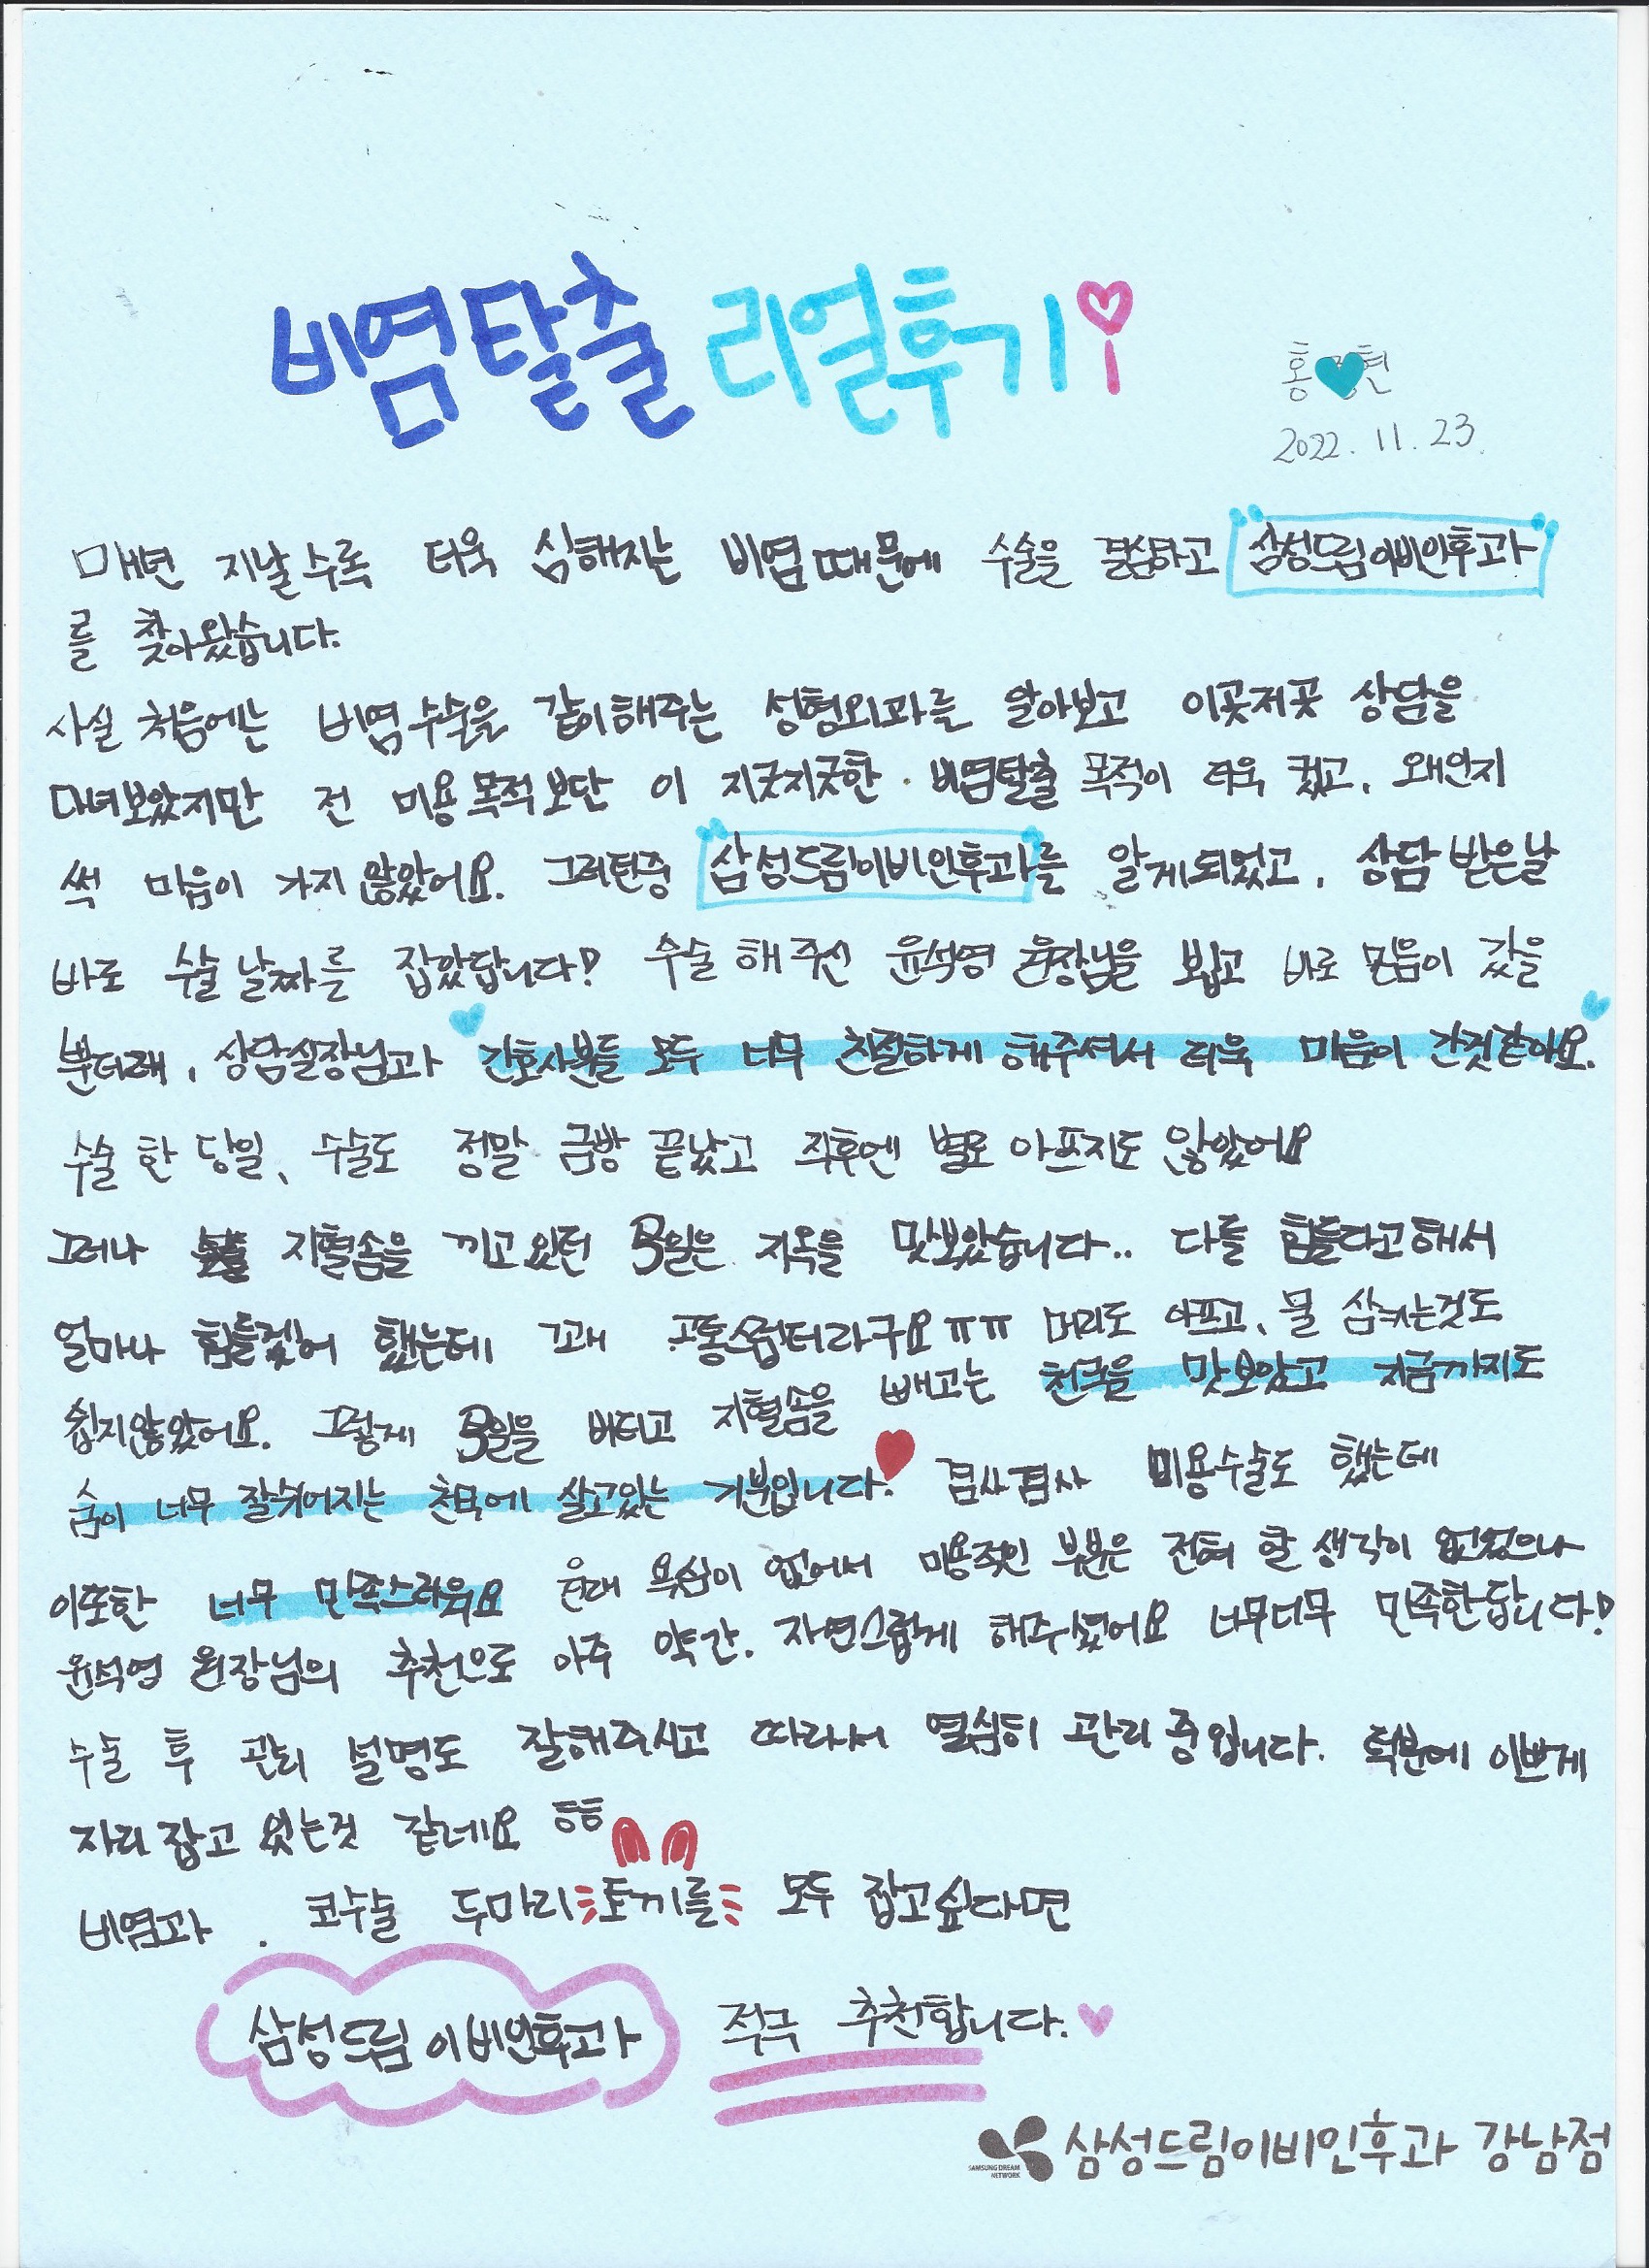 비염탈출 리얼후기!
홍 현
2022. 11. 23.
매년 지날수록 더욱 심해지는 비염때문에 수술을 결심하고 삼성드림이비인후과
를 찾아왔습니다.
사실 처음에는 비염수술을 같이해주는 성형외과를 알아보고 이곳저곳 상담을
다녀보았지만 전 미용목적보단 이 지긋지긋한 비염탈출 목적이 더욱 컸고, 왜인지
썩 마음이 가지 않았어요. 그러던중 삼성드림이비인후과를 알게되었고, 상담 받은날
바로 수술 날짜를 잡았답니다! 수술 해주신 윤석영 원장님을 뵙고 바로 믿음이 갔을
뿐더러, 상담실장님과 간호사분들 모두 너무 친절하게 해주셔서 더욱 마음이 간것같아요.
수술 한 당일, 수술도 정말 금방 끝났고 직후엔 별로 아프지도 않았어요
그러나 지혈솜을 끼고 있던 3일은 지옥을 맛보았습니다.. 다들 힘들다고해서
얼마나 힘들겠어 했는데 꽤 고통스럽더라구요ㅠㅠ 머리도 아프고, 물 삼키는것도
쉽지않았어요. 그렇게 3일을 버티고 지혈솜을 빼고는 천국을 맛보았고 지금까지도
숨이 너무 잘쉬어지는 천국에 살고있는 기분입니다. 겸사겸사 미용수술도 했는데
이또한 너무 만족스러워요 원래 욕심이 없어서 미용적인 부분은 전혀 할 생각이 없었으나
윤석영 원장님의 추천으로 아주 약간. 자연스럽게 해주셨어요 너무너무 만족한답니다!
수술 후 관리 설명도 잘해주시고 따라서 열심히 관리 중입니다. 덕분에 이쁘게
자리 잡고 있는것 같네요 ㅎㅎ
비염과 . 코수술 두마리 토끼를 모두 잡고싶다면
삼성드림 이비인후과 적극 추천합니다.
SAMSUNG DREAM NETWORK 삼성드림이비인후과 강남점